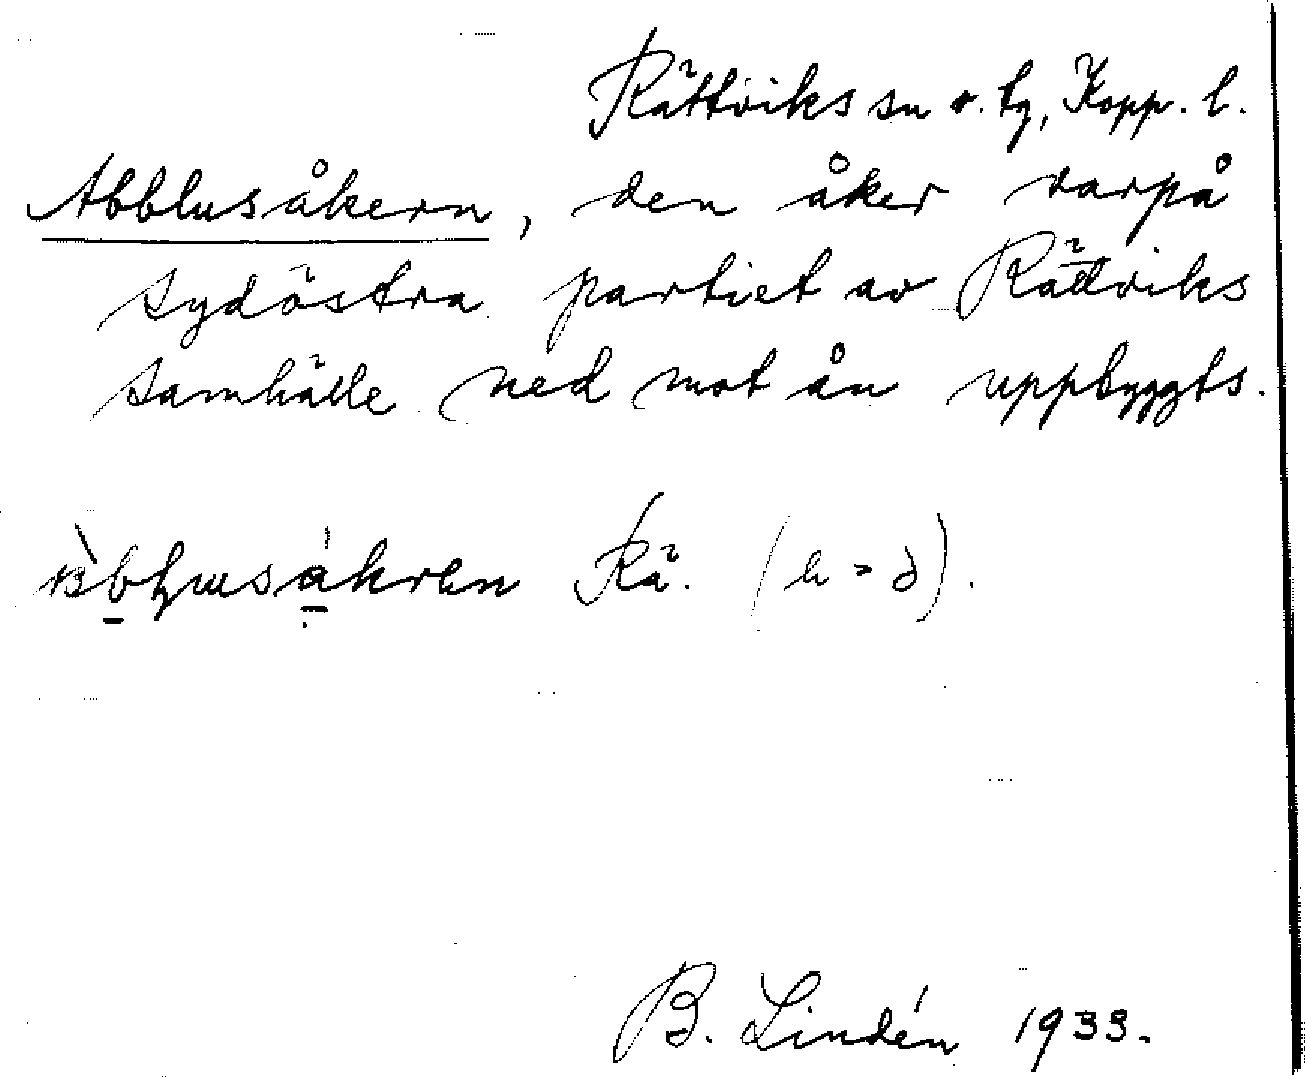 Rättviks sn o. tg, Kopp. l.
Abblusåkern, den åker varpå
sydöstra partiet av Rättviks
samhälle ned mot ån uppbyggts.
Rä.
B. Lindén 1933.